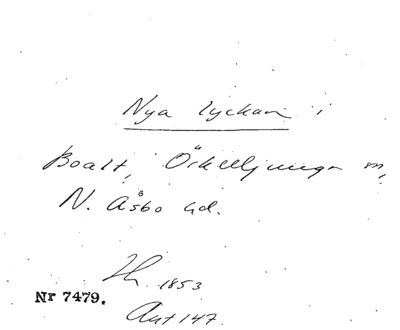 Nya lyckan i
Boalt, Örkelljunga m,
N. Åsbo hd.
1853
Nr 7479.
Ant 147.